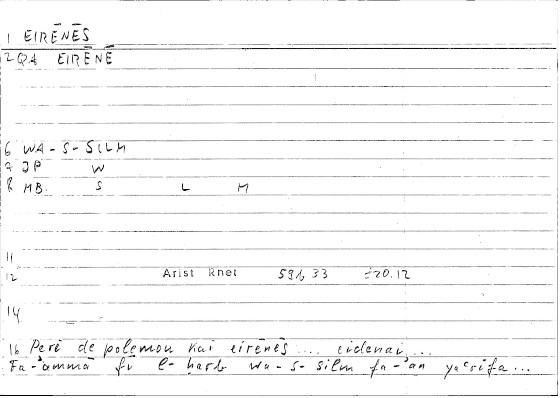 1 EIRĒNĒS
2 QA EIRĒNĒ
6 WA-S-SILM
7 JP W
8 MB. S L M
11
12 Arist Rhet 59b, 33 =20.12
14
16 Perì de polemou kai eirēnēs .... eidenai...
Fa-'ammā fī l-ḥarb wa-s-silm fa-'an ya'rifa...